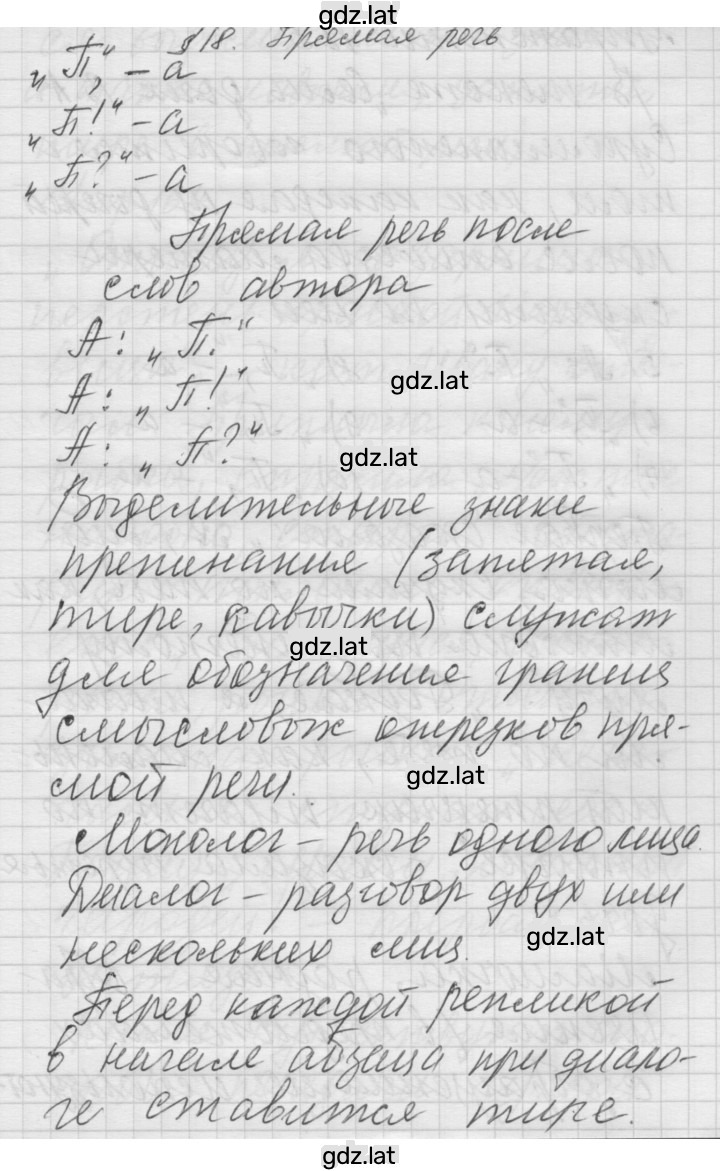 gdz.lat
§ 18. Прямая речь
„П", – а
„П!" – а
„П?" – а
Прямая речь после
слов автора
А: „П."
А: „П!"
gdz.lat
А: „П?"
gdz.lat
Выделительные знаки
препинания (запятая,
тире, кавычки) служат
gdz.lat
для обозначения границ
смысловых отрезков пря-
мой речи.
gdz.lat
Монолог – речь одного лица.
Диалог – разговор двух или
нескольких лиц.
gdz.lat
Перед каждой репликой
в начале абзаца при диало-
ге ставится тире.
gdz.lat